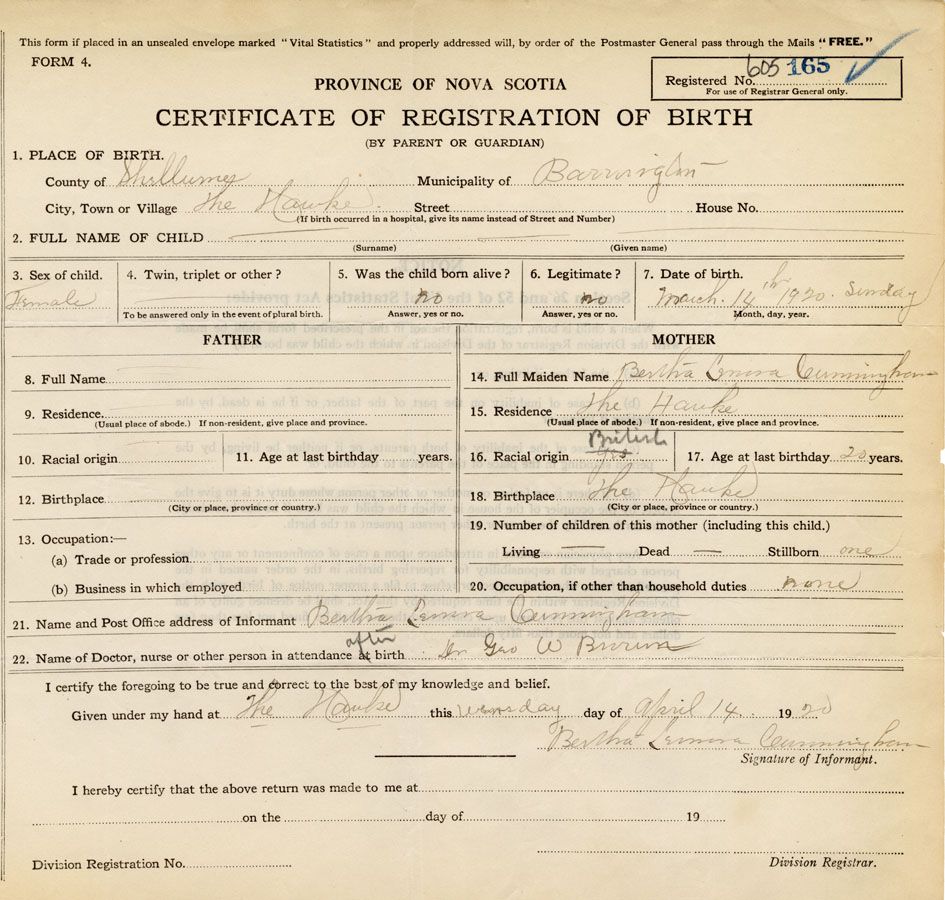 This form if placed in an unsealed envelope marked "Vital Statistics" and properly addressed will, by order of the Postmaster General pass through the Mails "FREE."
FORM 4.
605 165
Registered No.
For use of Registrar General only.
PROVINCE OF NOVA SCOTIA
CERTIFICATE OF REGISTRATION OF BIRTH
(BY PARENT OR GUARDIAN)
1. PLACE OF BIRTH.
County of Shellurne Municipality of Barrington
City, Town or Village The Hawke Street House No.
(If birth occurred in a hospital, give its name instead of Street and Number)
2. FULL NAME OF CHILD
(Surname) (Given name)
3. Sex of child. 4. Twin, triplet or other? 5. Was the child born alive? 6. Legitimate? 7. Date of birth.
Female no no March. 14th 1920. Sunday
To be answered only in the event of plural birth. Answer, yes or no. Answer, yes or no. Month, day, year.
FATHER MOTHER
8. Full Name 14. Full Maiden Name Bertha Lenora Cunningham
9. Residence. 15. Residence The Hawke
(Usual place of abode.) If non-resident, give place and province. (Usual place of abode.) If non-resident, give place and province.
British
10. Racial origin 11. Age at last birthday years. 16. Racial origin yes 17. Age at last birthday 20 years.
12. Birthplace 18. Birthplace The Hawke
(City or place, province or country.) (City or place, province or country.)
13. Occupation:— 19. Number of children of this mother (including this child.)
(a) Trade or profession Living — Dead — Stillborn one
(b) Business in which employed 20. Occupation, if other than household duties none
21. Name and Post Office address of Informant Bertha Lenora Cunningham
after
22. Name of Doctor, nurse or other person in attendance at birth Dr Geo W Brown
I certify the foregoing to be true and correct to the best of my knowledge and belief.
Given under my hand at The Hawke this Wensday day of April 14. 1920
Bertha Lenora Cunningham
Signature of Informant.
I hereby certify that the above return was made to me at
on the day of 19
Division Registration No. Division Registrar.